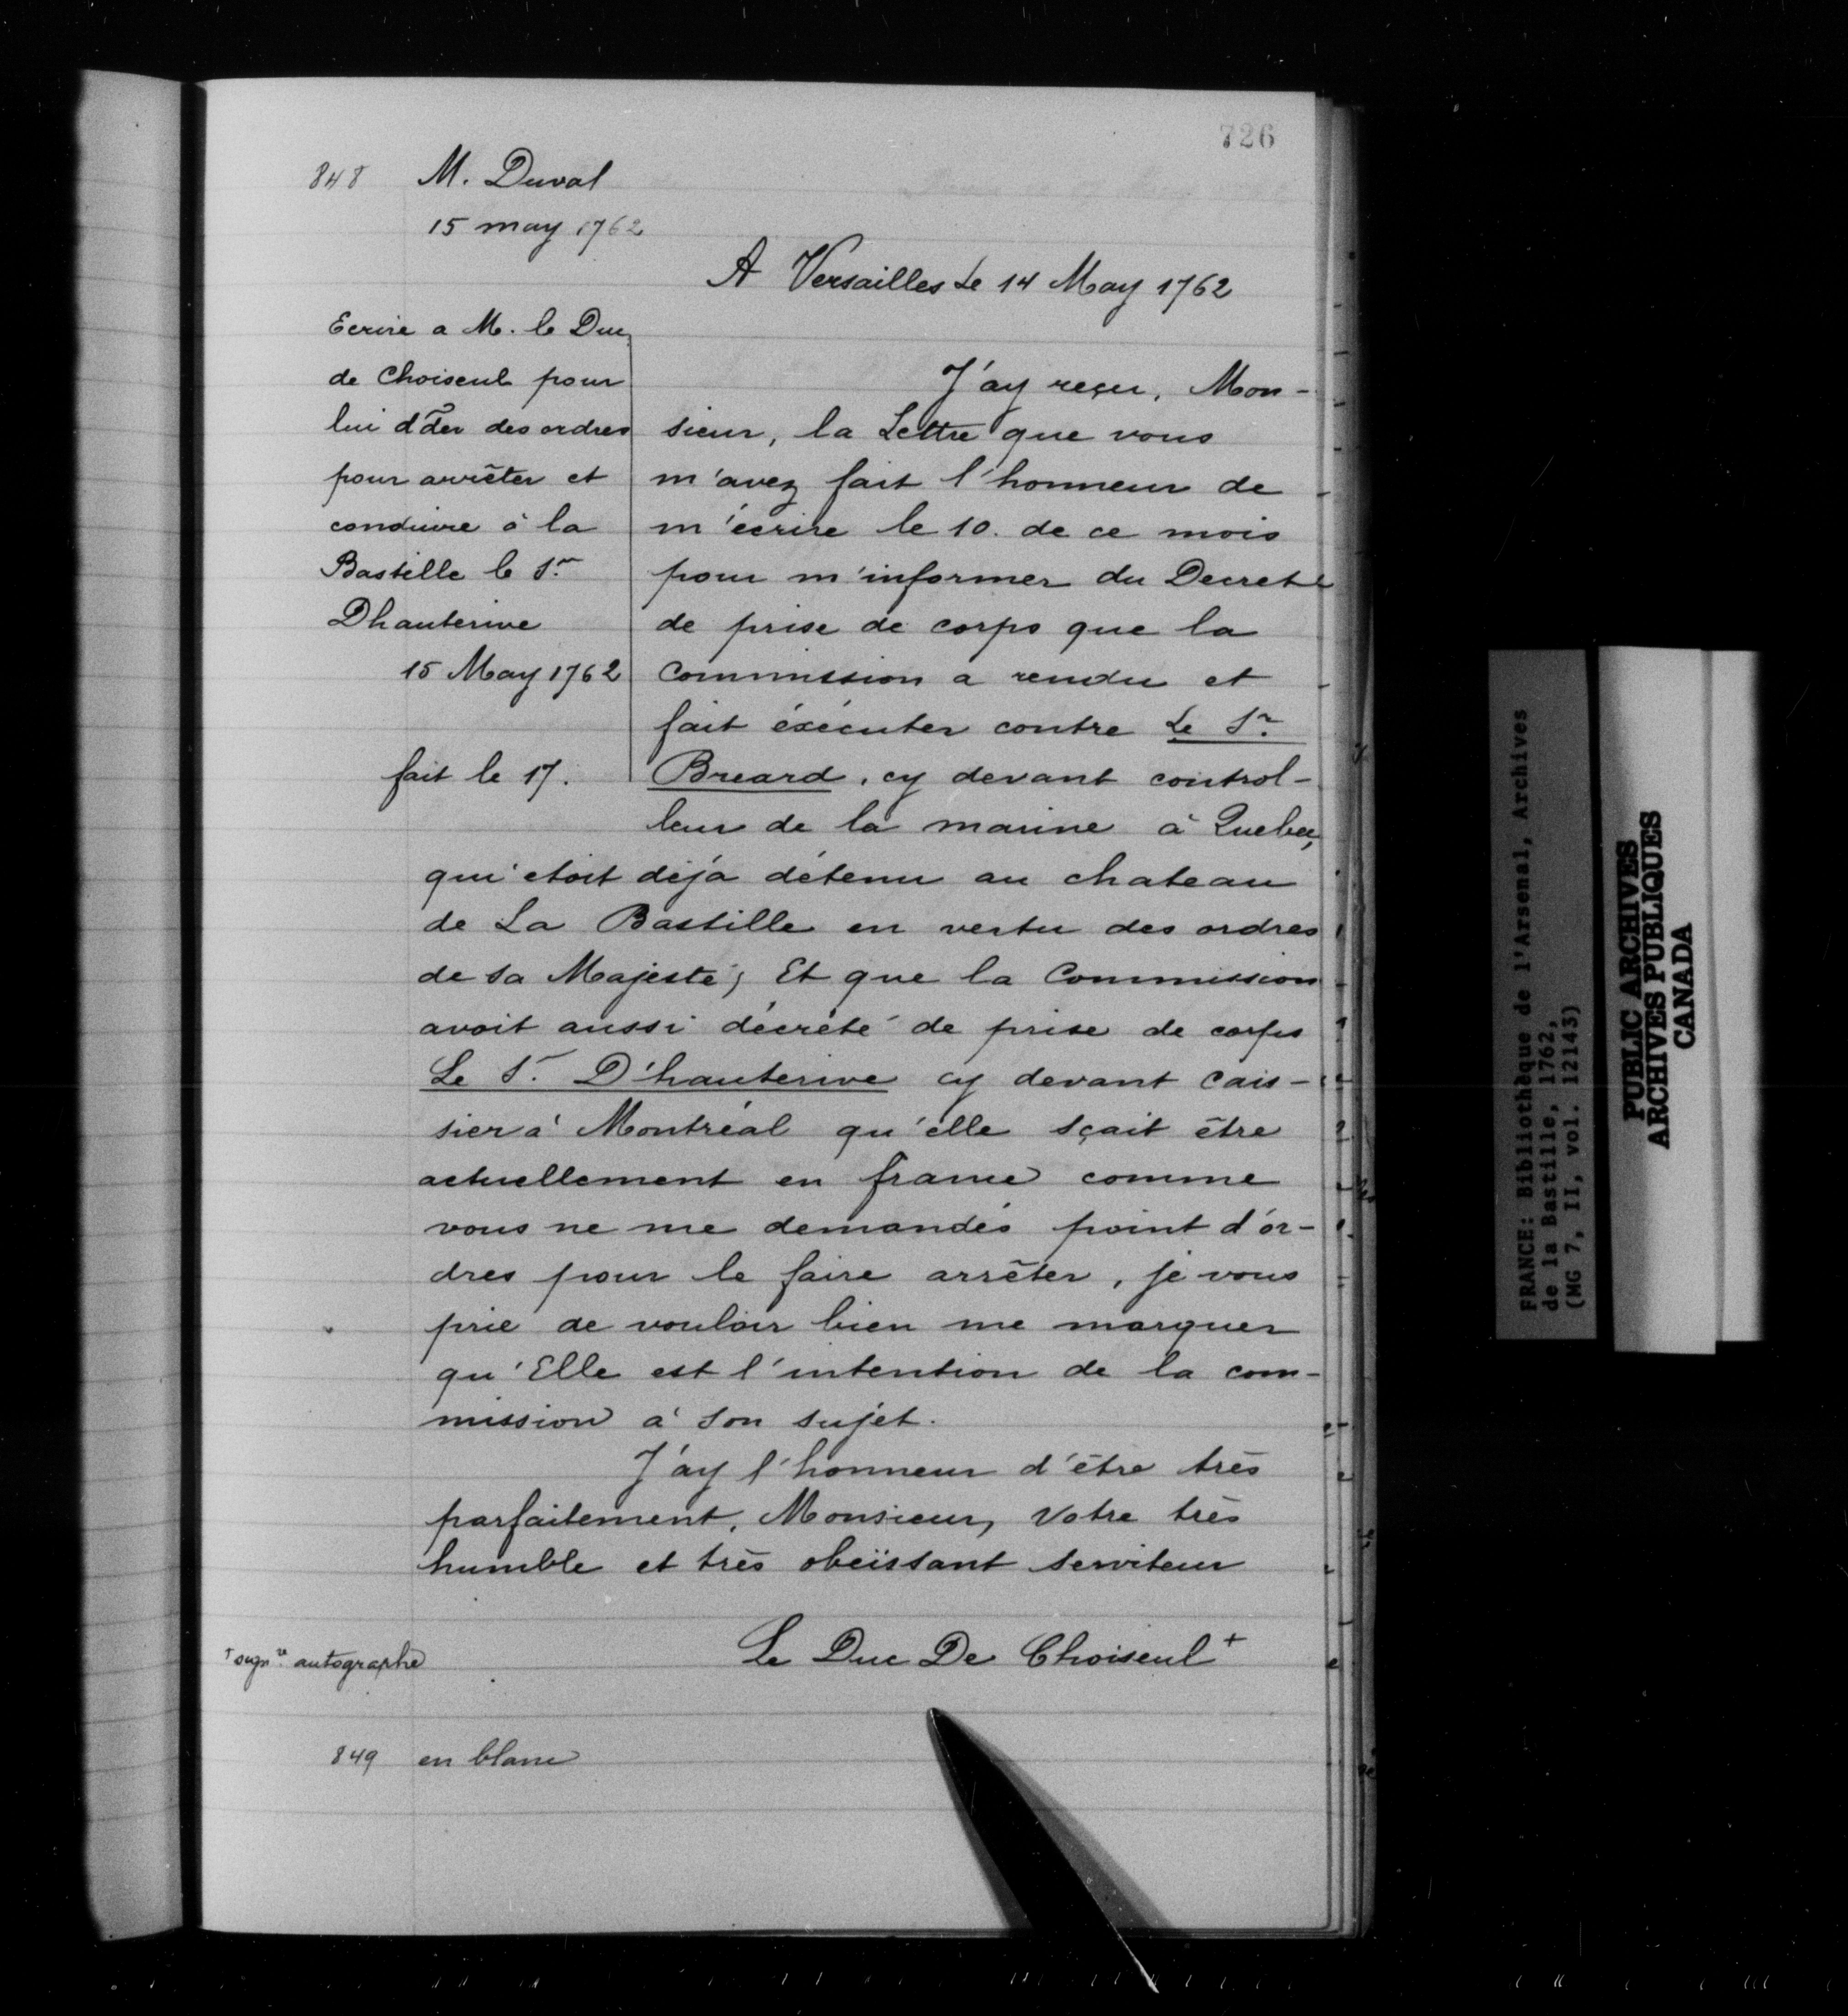 726
848 M. Duval
15 may 1762
A Versailles Le 14 May 1762
Ecrire a M. le Duc
de Choiseul pour
lui dder des ordres
pour arrêter et
conduire à la
Bastille le Sr.
Dhauterive
15 May 1762
fait le 17.
J'ay reçu, Mon-
sieur, la Lettre que vous
m'avez fait l'honneur de
m'écrire le 10. de ce mois
pour m'informer du Decret
de prise de corps que la
Commission a rendu et
fait éxécuter contre Le Sr.
Breard, cy devant control-
leur de la marine à Quebec,
qui étoit déjà détenu au chateau
de La Bastille en vertu des ordres
de sa Majesté; Et que la Commission
avoit aussi décrété de prise de corps
Le Sr. D'hauterive cy devant Cais-
sier à Montréal qu'elle sçait être
actuellement en france comme
vous ne me demandés point d'or-
dres pour le faire arrêter, je vous
prie de vouloir bien me marquer
qu'Elle est l'intention de la com-
mission à son sujet.
J'ay l'honneur d'être très
parfaitement, Monsieur, Votre très
humble et très obeïssant serviteur
Le Duc De Choiseul +
+ signre autographe
849 en blanc
FRANCE: Bibliothèque de l'Arsenal, Archives
de la Bastille, 1762,
(MG 7, II, vol. 12143)
PUBLIC ARCHIVES
ARCHIVES PUBLIQUES
CANADA